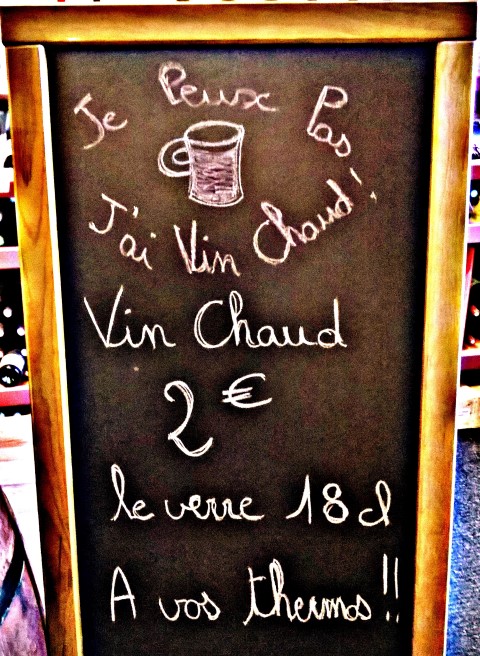 Je Peux Pas
J'ai Vin Chaud !
Vin Chaud
2 €
le verre 18 cl
A vos thermos !!